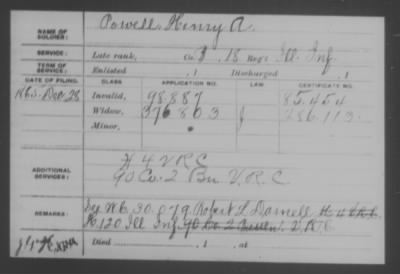 NAME OF SOLDIER: Powell, Henry A.
SERVICE: Late rank, Co. I, 18 Reg't Ill. Inf
TERM OF SERVICE: Enlisted , 1 Discharged , 1
DATE OF FILING. CLASS. APPLICATION NO. LAW. CERTIFICATE NO.
1865 Dec. 28 Invalid, 98.887 85.454
Widow, 376803 286.113.
Minor,
ADDITIONAL SERVICES: H 4 V.R.C.
90 Co. 2 Bn. V.R.C.
REMARKS: 30.079 Robert L. Darnell
K 120 Ill Inf.
Died , 1 , at